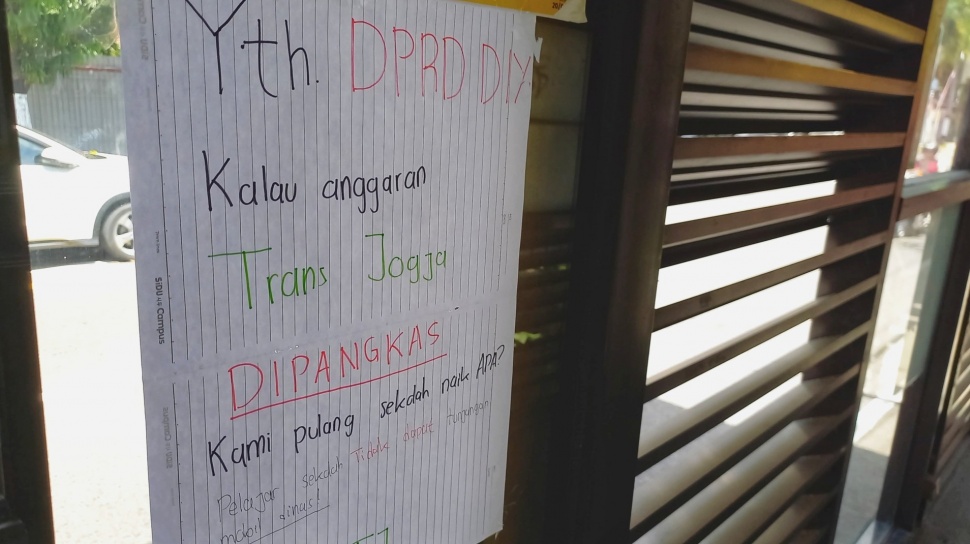 Yth. DPRD DIY
Kalau anggaran
Trans Jogja
DIPANGKAS
Kami pulang sekolah naik APA?
Pelajar sekolah Tidak dapat tunjangan
mobil dinas!
SIDU Campus